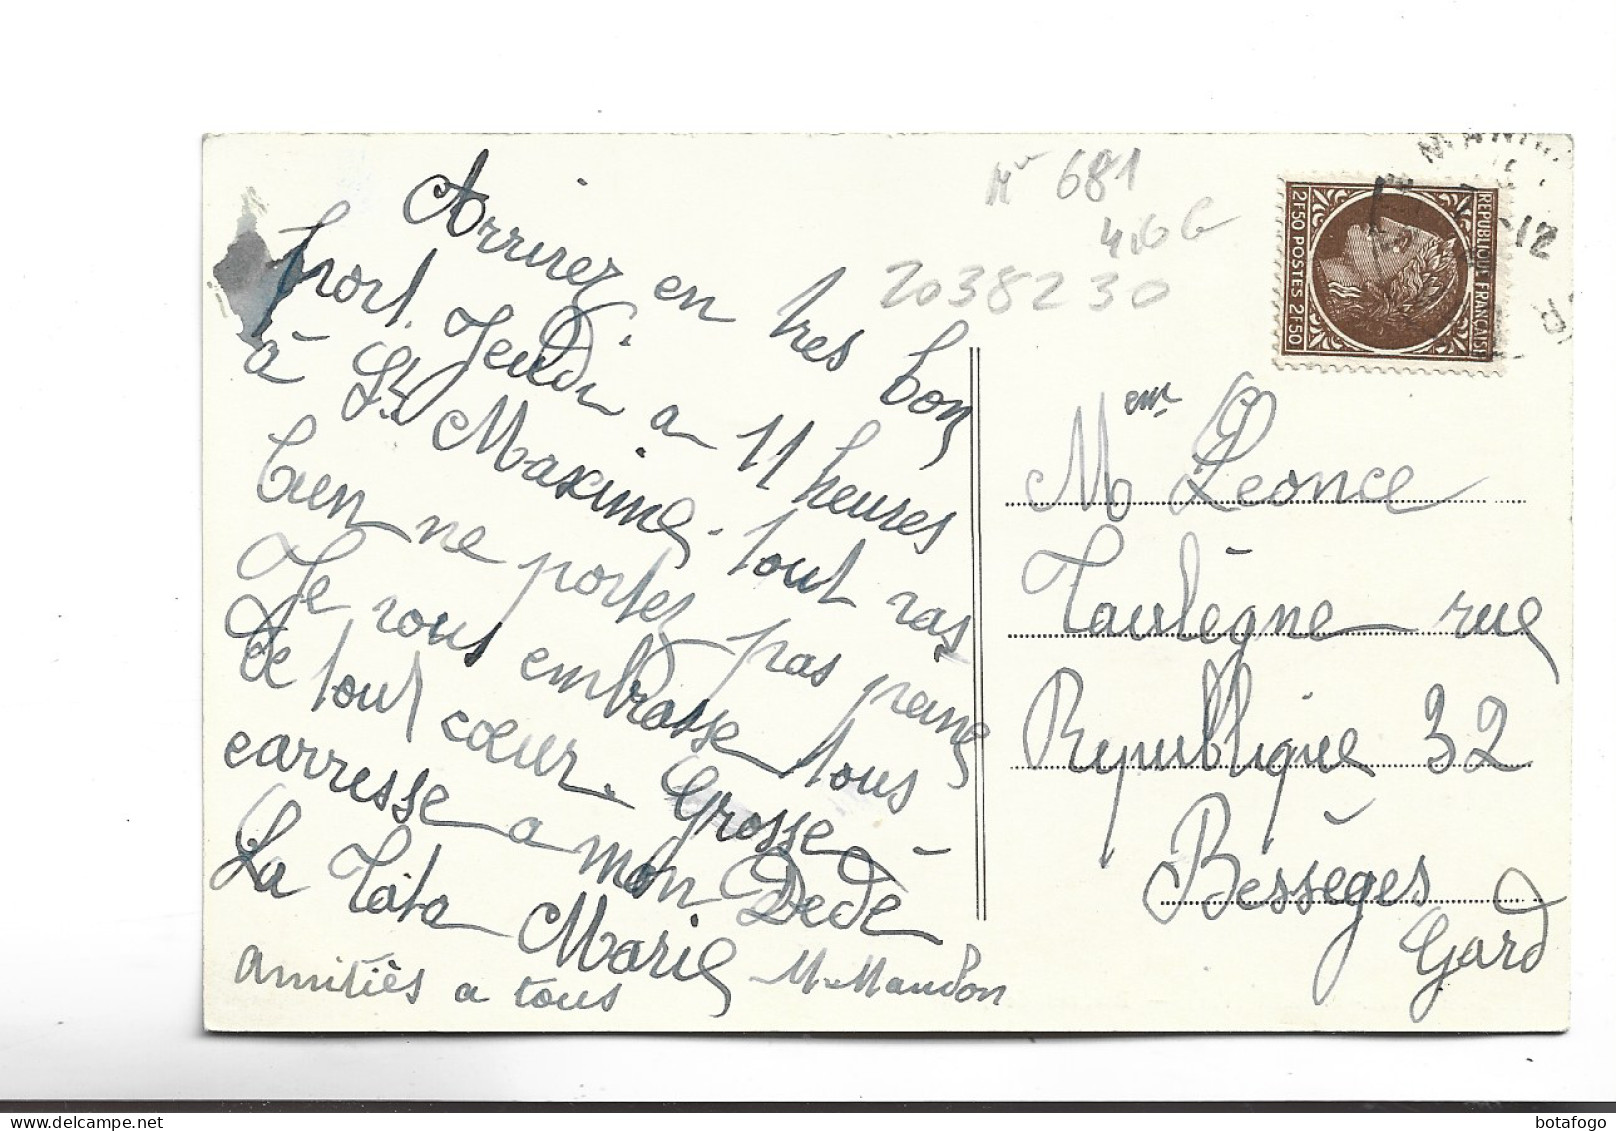 Arrivez en tres bon
port. Jeudi a 11 heures
à St Maxime. tout vas
bien ne portez pas peine
Je vous embrasse tous
de tout cœur. Grosse
carresse a mon Dedé
La Tata Marie
amitiés a tous M. Maudon
N° 681
20 38 2 30
REPUBLIQUE FRANCAISE
2F50 POSTES 2F50
Mr Léonce
Taulègne rue
République 32
Bessèges
Gard
botafogo